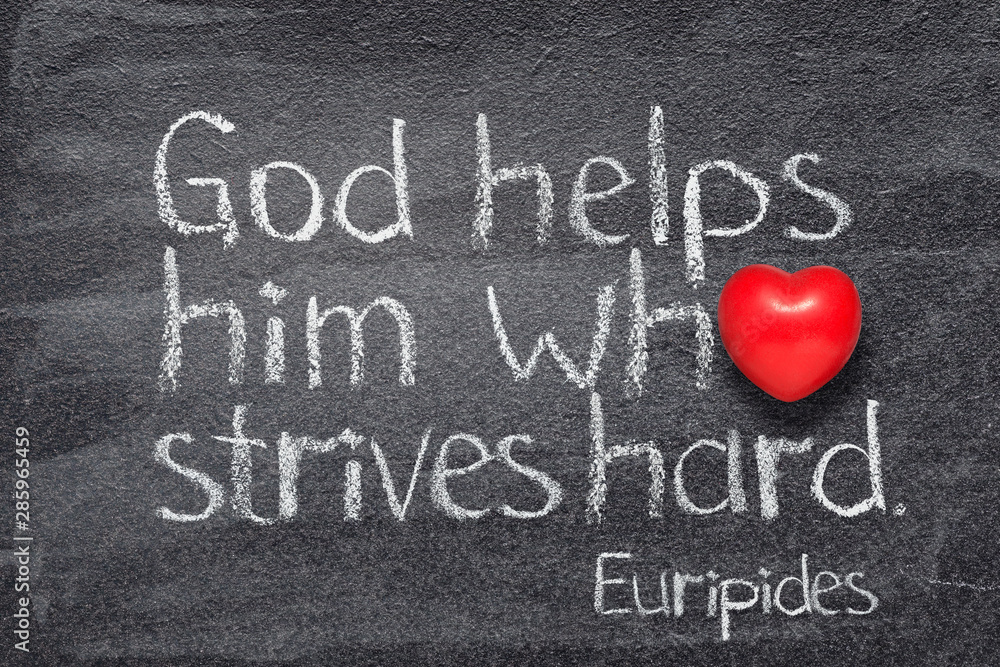 God helps
him wh
strives hard.
Euripides
Adobe Stock | #285965459